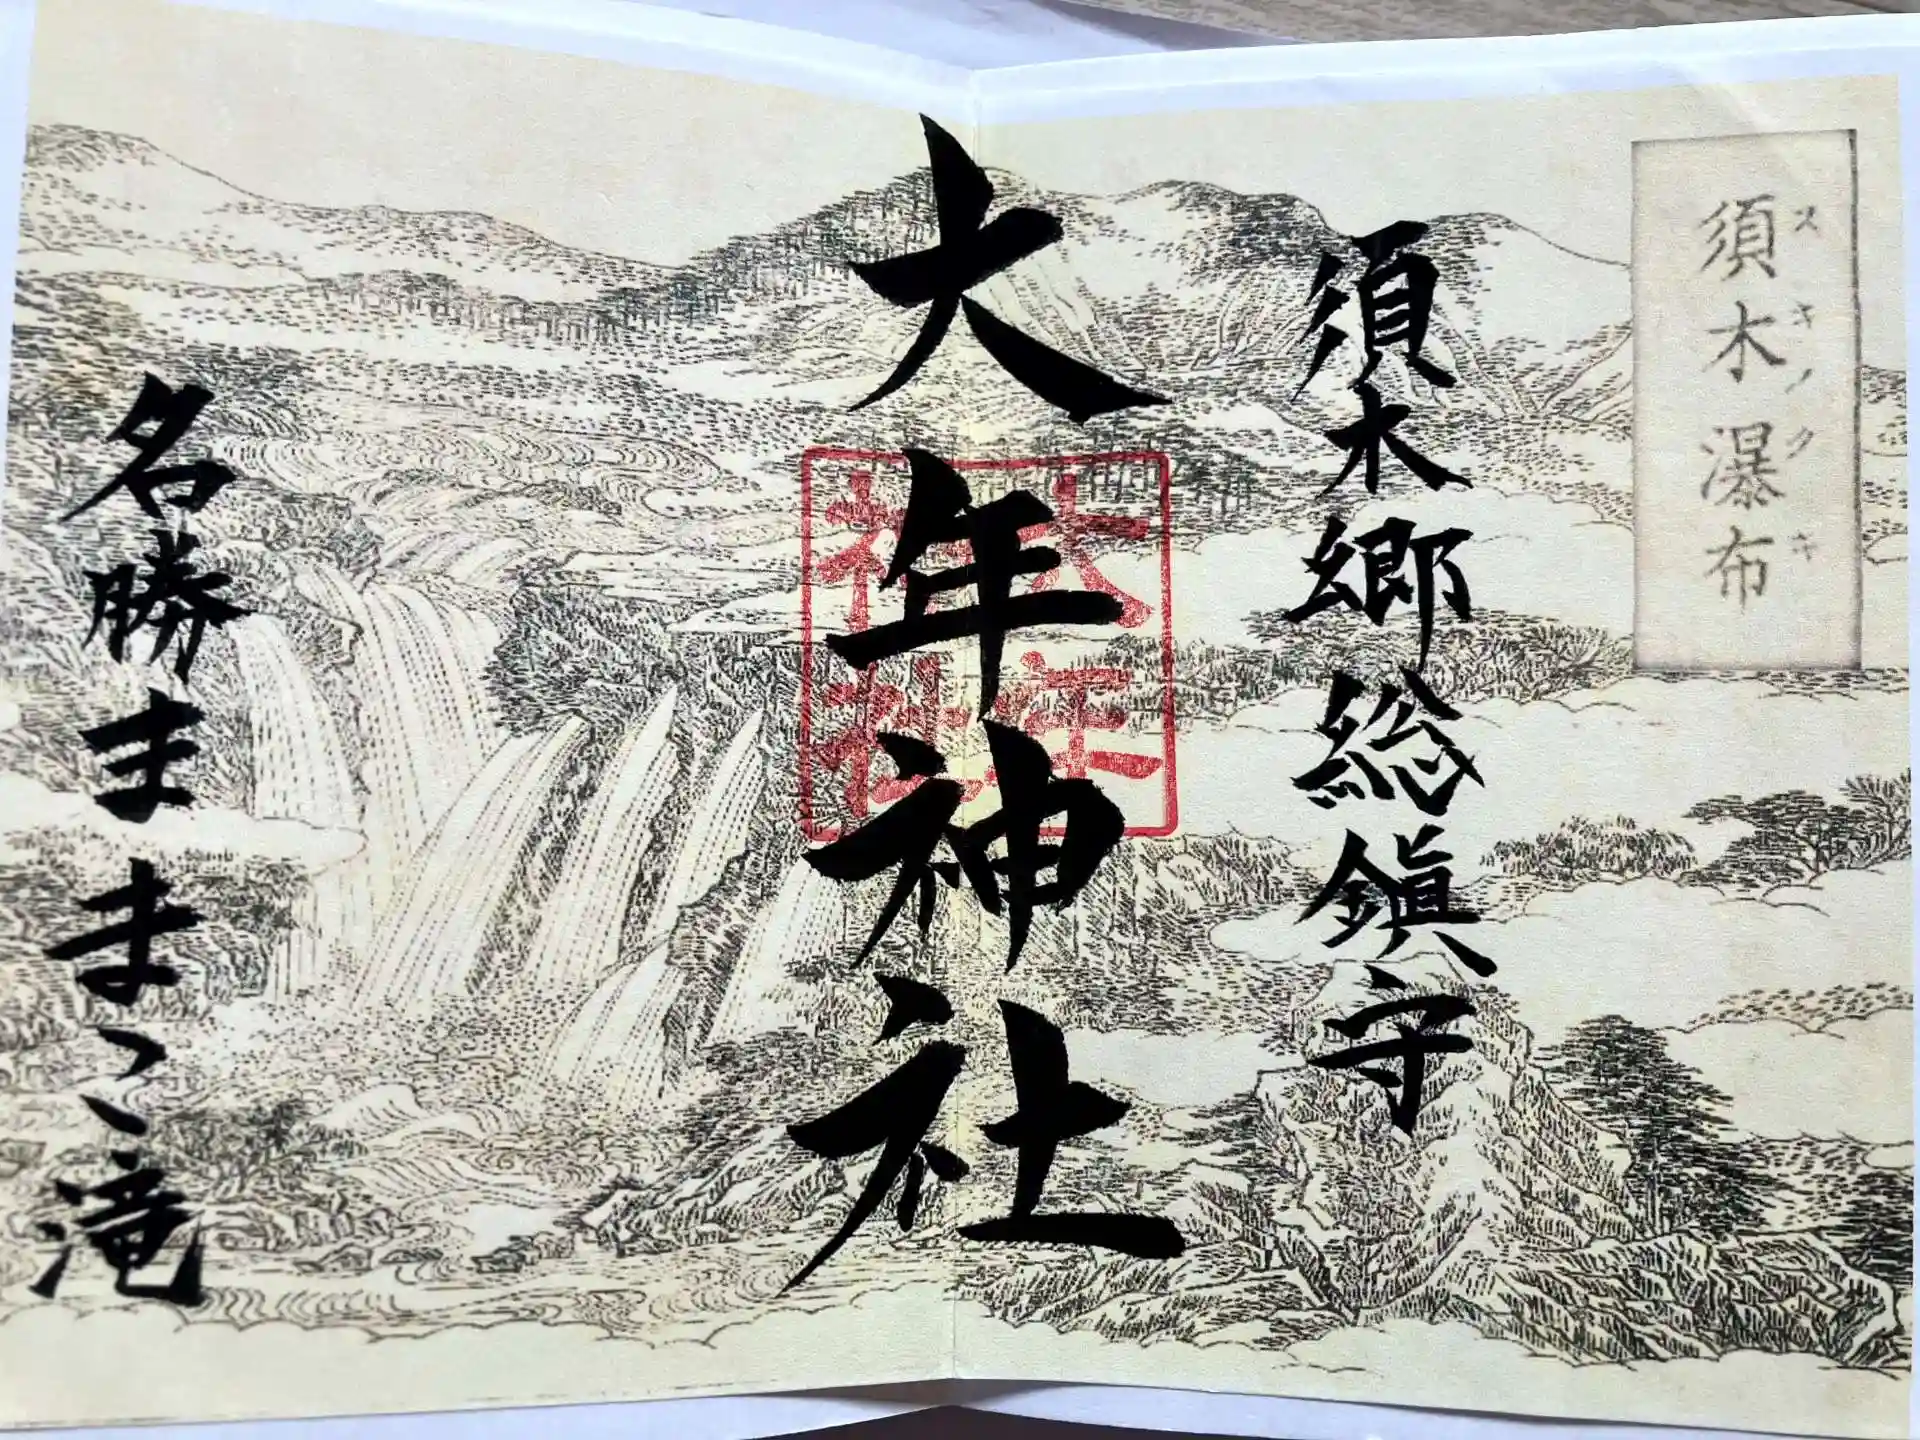 スキノタキ
須木瀑布
須木郷総鎮守
大年神社
大年
神社
名勝ままこ滝